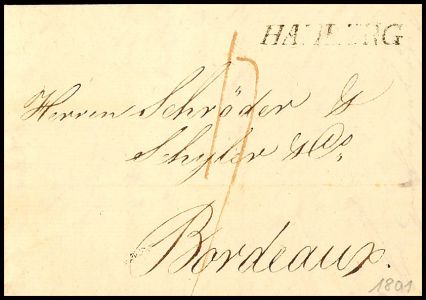 HAMBURG
Herren Schröder &
Schyler & Co.
Bordeaux.
1801